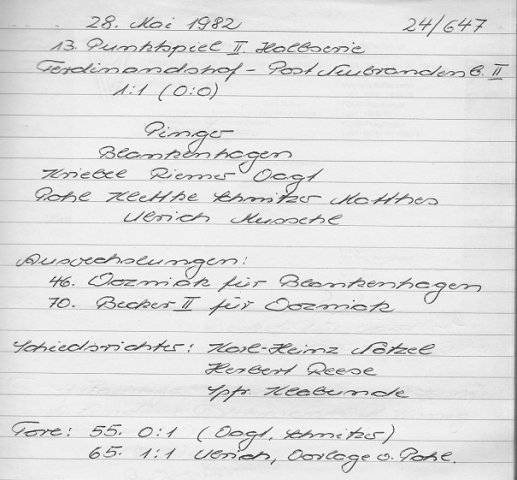 28. Mai 1982 24/647
13. Punktspiel II. Halbserie
Ferdinandshof - Post Neubrandenb. II
1:1 (0:0)
Pingo
Blankenhagen
Kriebel Riemer Vagl
Pohl Klethke Schnitzer Matthes
Ulrich Muschel
Auswechslungen:
46. Wozniak für Blankenhagen
70. Becker II für Wozniak
Schiedsrichter: Karl-Heinz Nötzel
Herbert Reese
Spfr. Klabunde
Tore: 55. 0:1 (Vagl, Schnitzer)
65. 1:1 Ulrich, Vorlage v. Pohl.